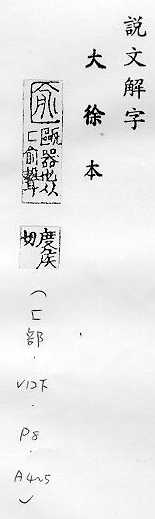 説文解字
大徐本
匬
甌器也从
匚俞聲
度矦
切
(匚部.V12下.P8.A4~5)